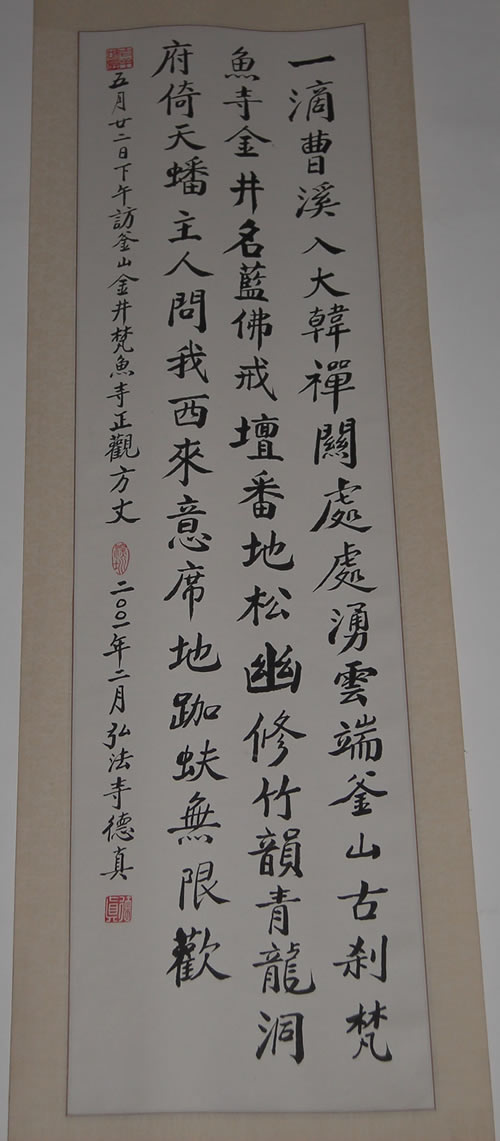 一滴曹溪入大韓禪關處處湧雲端釜山古剎梵
魚寺金井名藍佛戒壇番地松幽修竹韻青龍洞
府倚天蟠主人問我西來意席地跏蚨無限歡
五月廿二日下午訪釜山金井梵魚寺正觀方丈 二〇〇一年二月弘法寺德真